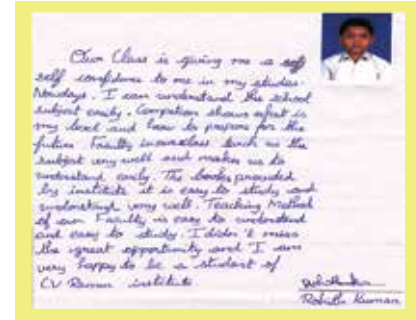 Our Class is giving me a self
self confidence to me in my studies
Nowdays. I can understand the school
subject easily. Compition shows what is
my level and how to prepare for the
future. Faculty in our class teach us the
subject very well and makes us to
understand easily. The books provided
by institute it is easy to study and
understand very well. Teaching Method
of our Faculty is easy to understand
and easy to study. I didn't miss
the great opportunity and I am
very happy to be a student of
CV Raman institute
Rohith Kumar